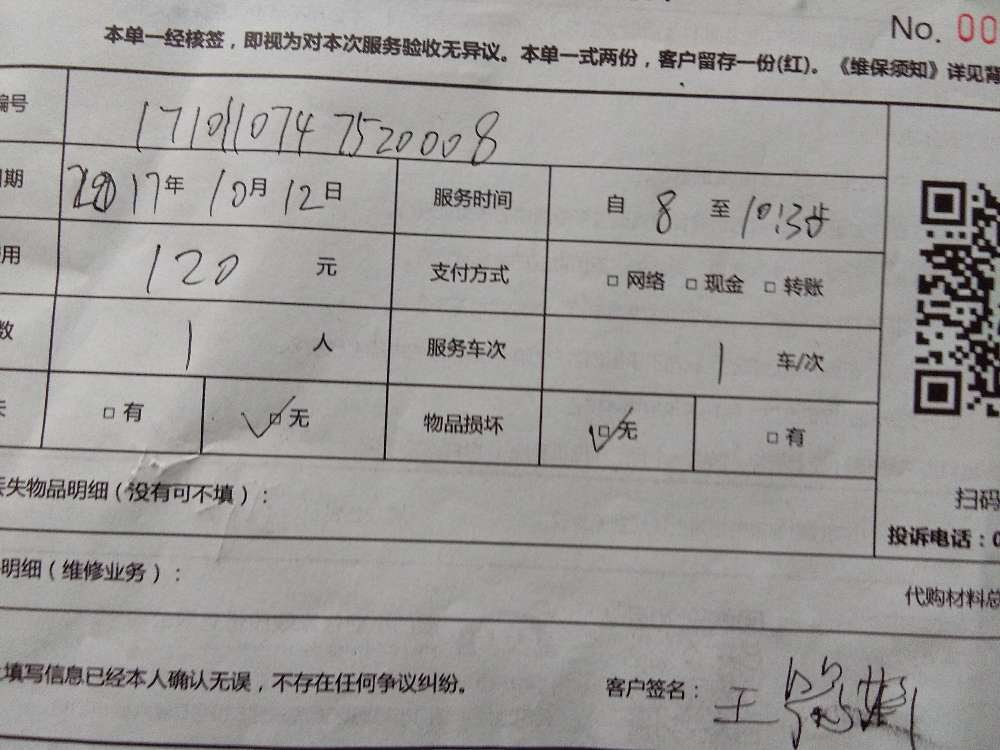 No. 00
本单一经核签，即视为对本次服务验收无异议。本单一式两份，客户留存一份(红)。《维保须知》详见背
编号 171011074 7520008
期 2017年 10月 12日 服务时间 自 8 至 10:35
用 120 元 支付方式 □ 网络 □ 现金 □ 转账
数 1 人 服务车次 1 车/次
□ 有 □ 无 物品损坏 □ 无 □ 有
失物品明细（没有可不填）：
扫码
投诉电话：0
明细（维修业务）：
代购材料总
填写信息已经本人确认无误，不存在任何争议纠纷。 客户签名： 王